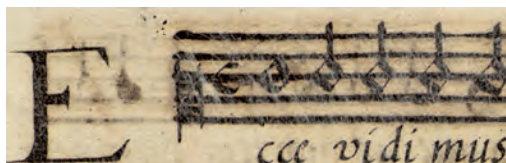 E
cce vidi mus